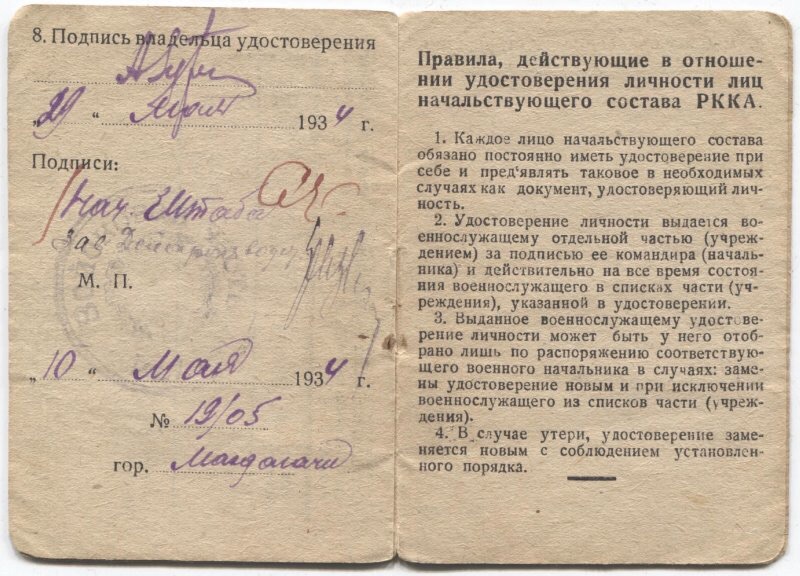 8. Подпись владельца удостоверения
„29 “ 1934 г.
Подписи:
Нач. Штаба
М. П.
„10 “ Мая 1934 г.
№ 19/05
гор. Магдагачи
Правила, действующие в отноше-
нии удостоверения личности лиц
начальствующего состава РККА.
1. Каждое лицо начальствующего состава
обязано постоянно иметь удостоверение при
себе и пред'являть таковое в необходимых
случаях как документ, удостоверяющий лич-
ность.
2. Удостоверение личности выдается во-
еннослужащему отдельной частью (учреж-
дением) за подписью ее командира (началь-
ника) и действительно на все время состоя-
ния военнослужащего в списках части (уч-
реждения), указанной в удостоверении.
3. Выданное военнослужащему удостове-
рение личности может быть у него отоб-
рано лишь по распоряжению соответствую-
щего военного начальника в случаях: заме-
ны удостоверение новым и при исключении
военнослужащего из списков части (учреж-
дения).
4. В случае утери, удостоверение заме-
няется новым с соблюдением установлен-
ного порядка.